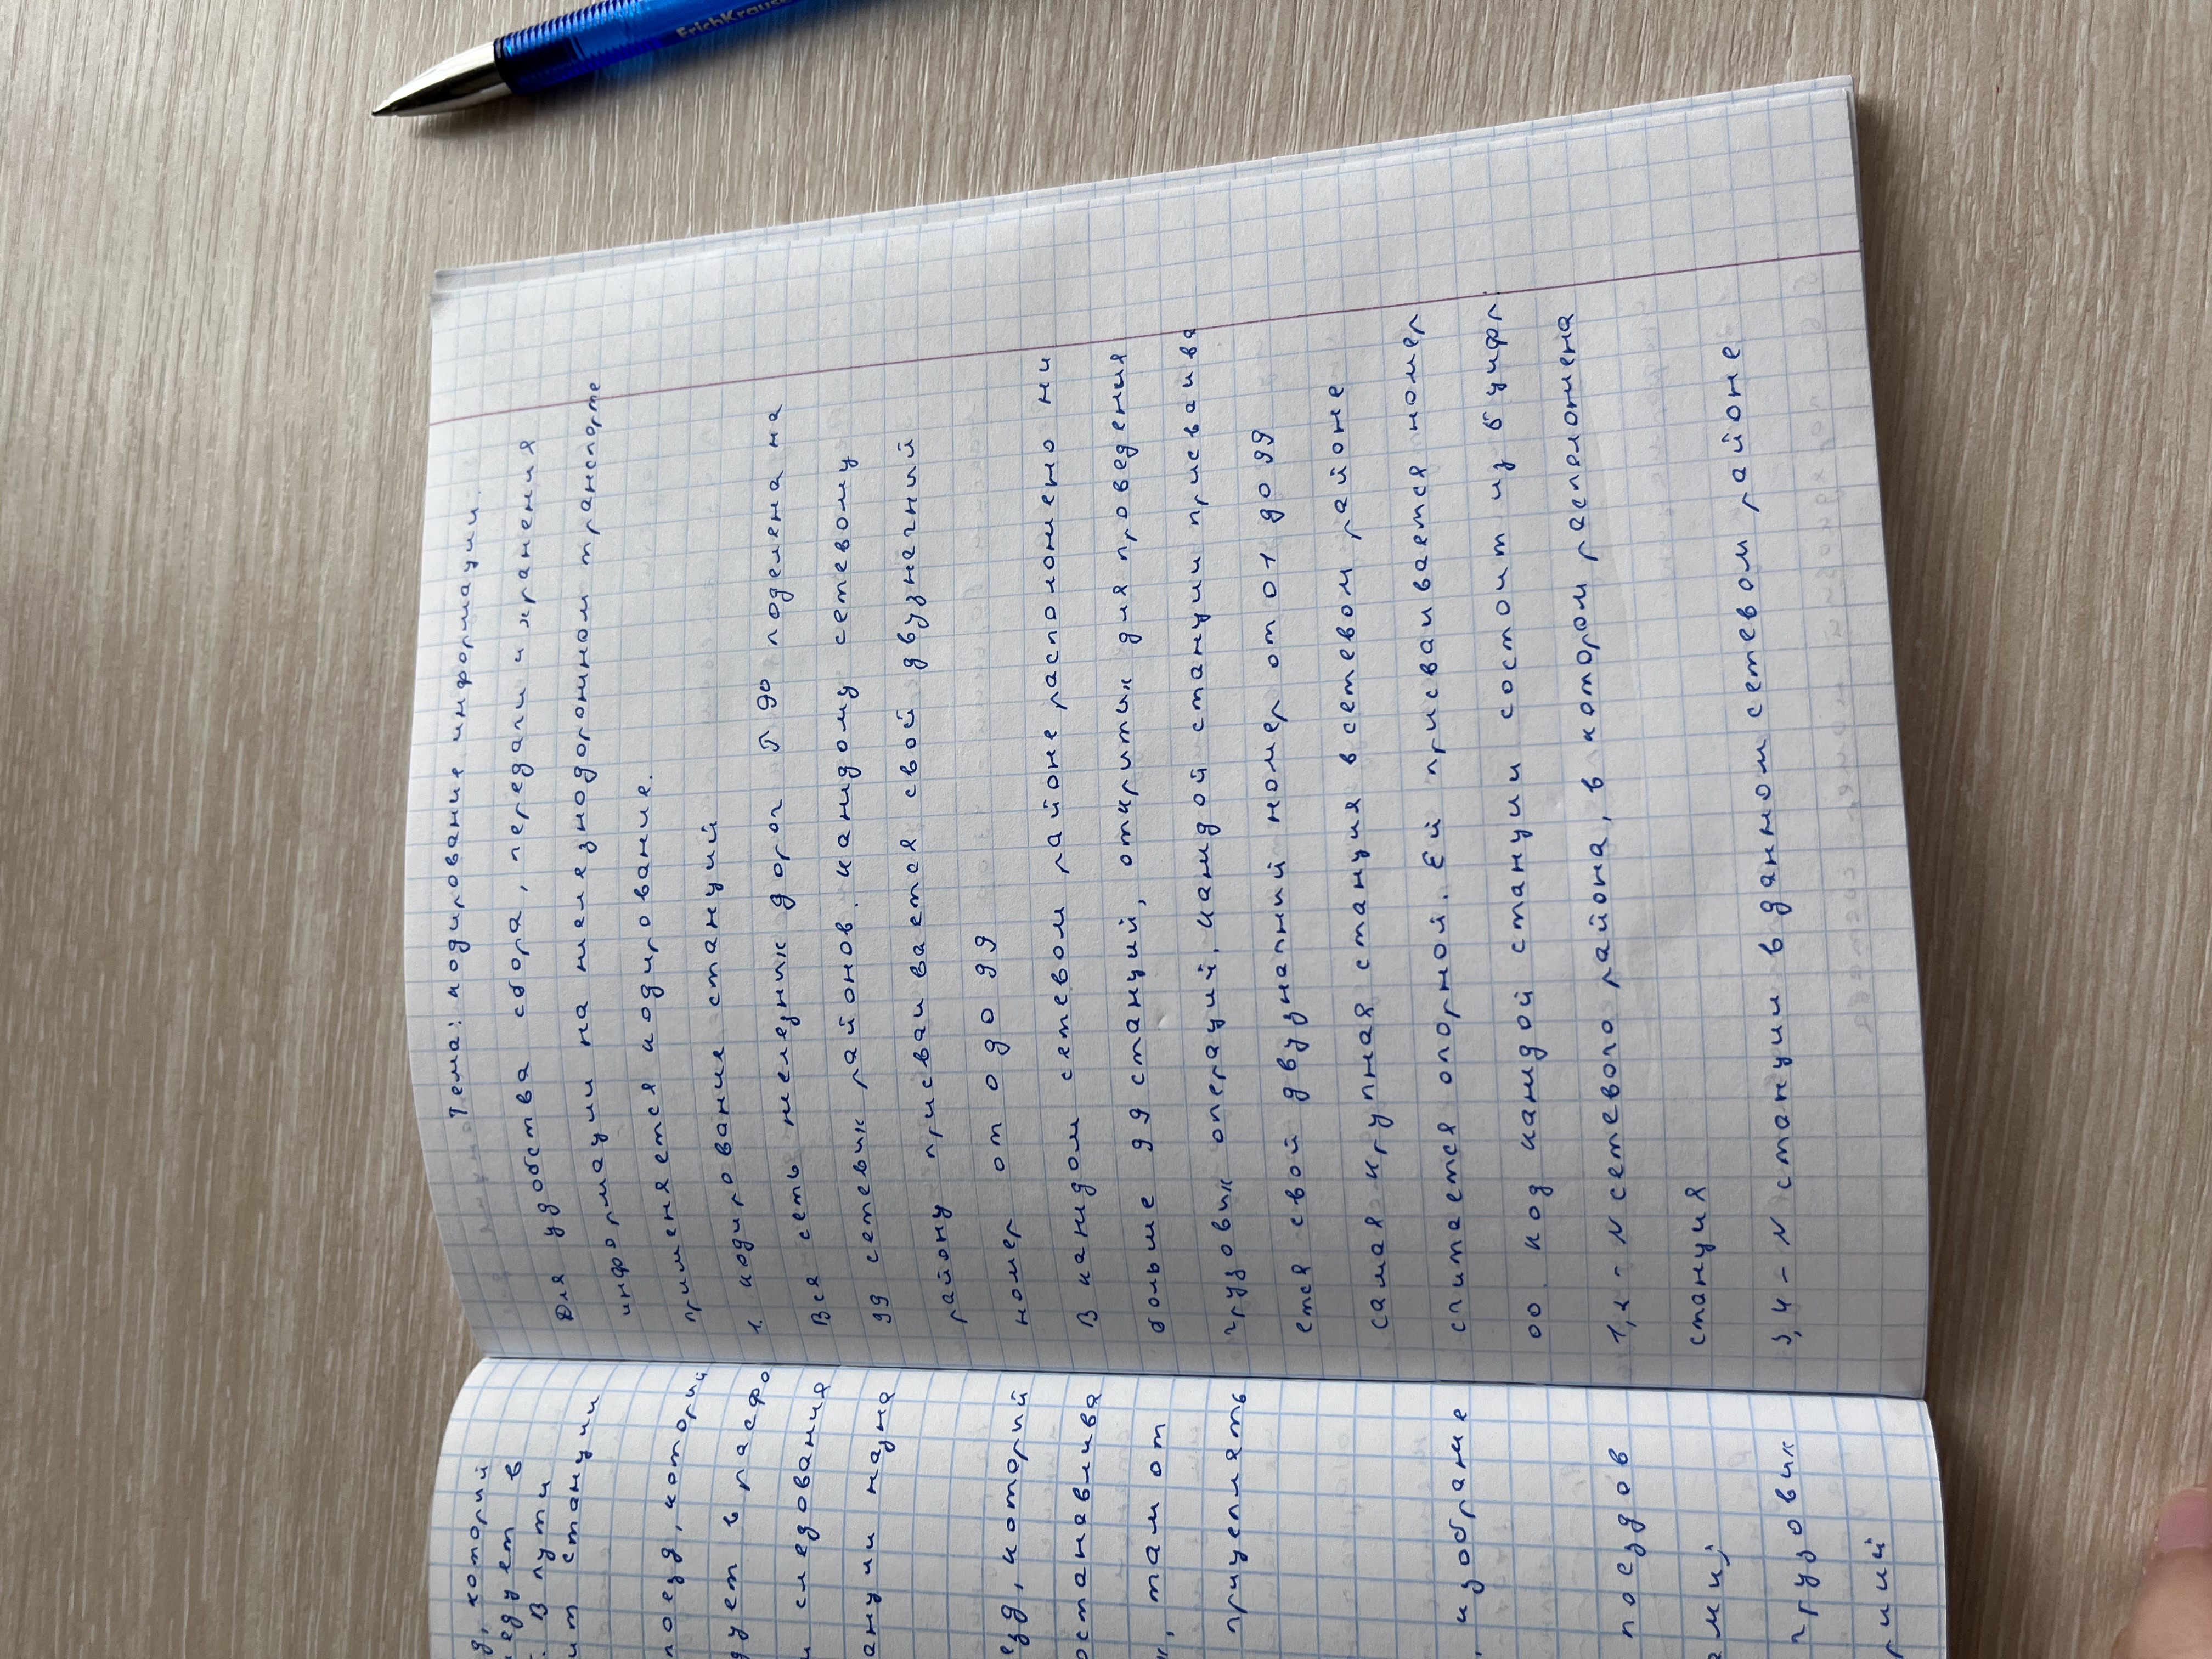 Тема: кодирование информации.
Для удобства сбора, передачи и хранения
информации на железнодорожном транспорте
применяется кодирование.
1. кодирование станций
Вся сеть железных дорог поделена на
99 сетевых районов. каждому сетевому
району присваивается свой двузначный
номер от 0 до 99
В каждом сетевом районе расположено ни
больше 99 станций, открытых для проведения
грузовых операций. каждой станции присваива
ется свой двузначный номер от 01 до 99
самая крупная станция в сетевом районе
считается опорной. Ей присваивается номер
00. код каждой станции состоит из 6 цифр.
1,2 - N сетевого района, в котором расположена
станция
3,4 - N станции в данном сетевом районе
который
едует в
В пути
станции
поезд, который
в расфо
и следования
назна
который
останавлива
там от
прицеплять
изображе
поездов
грузовых
ErichKrause